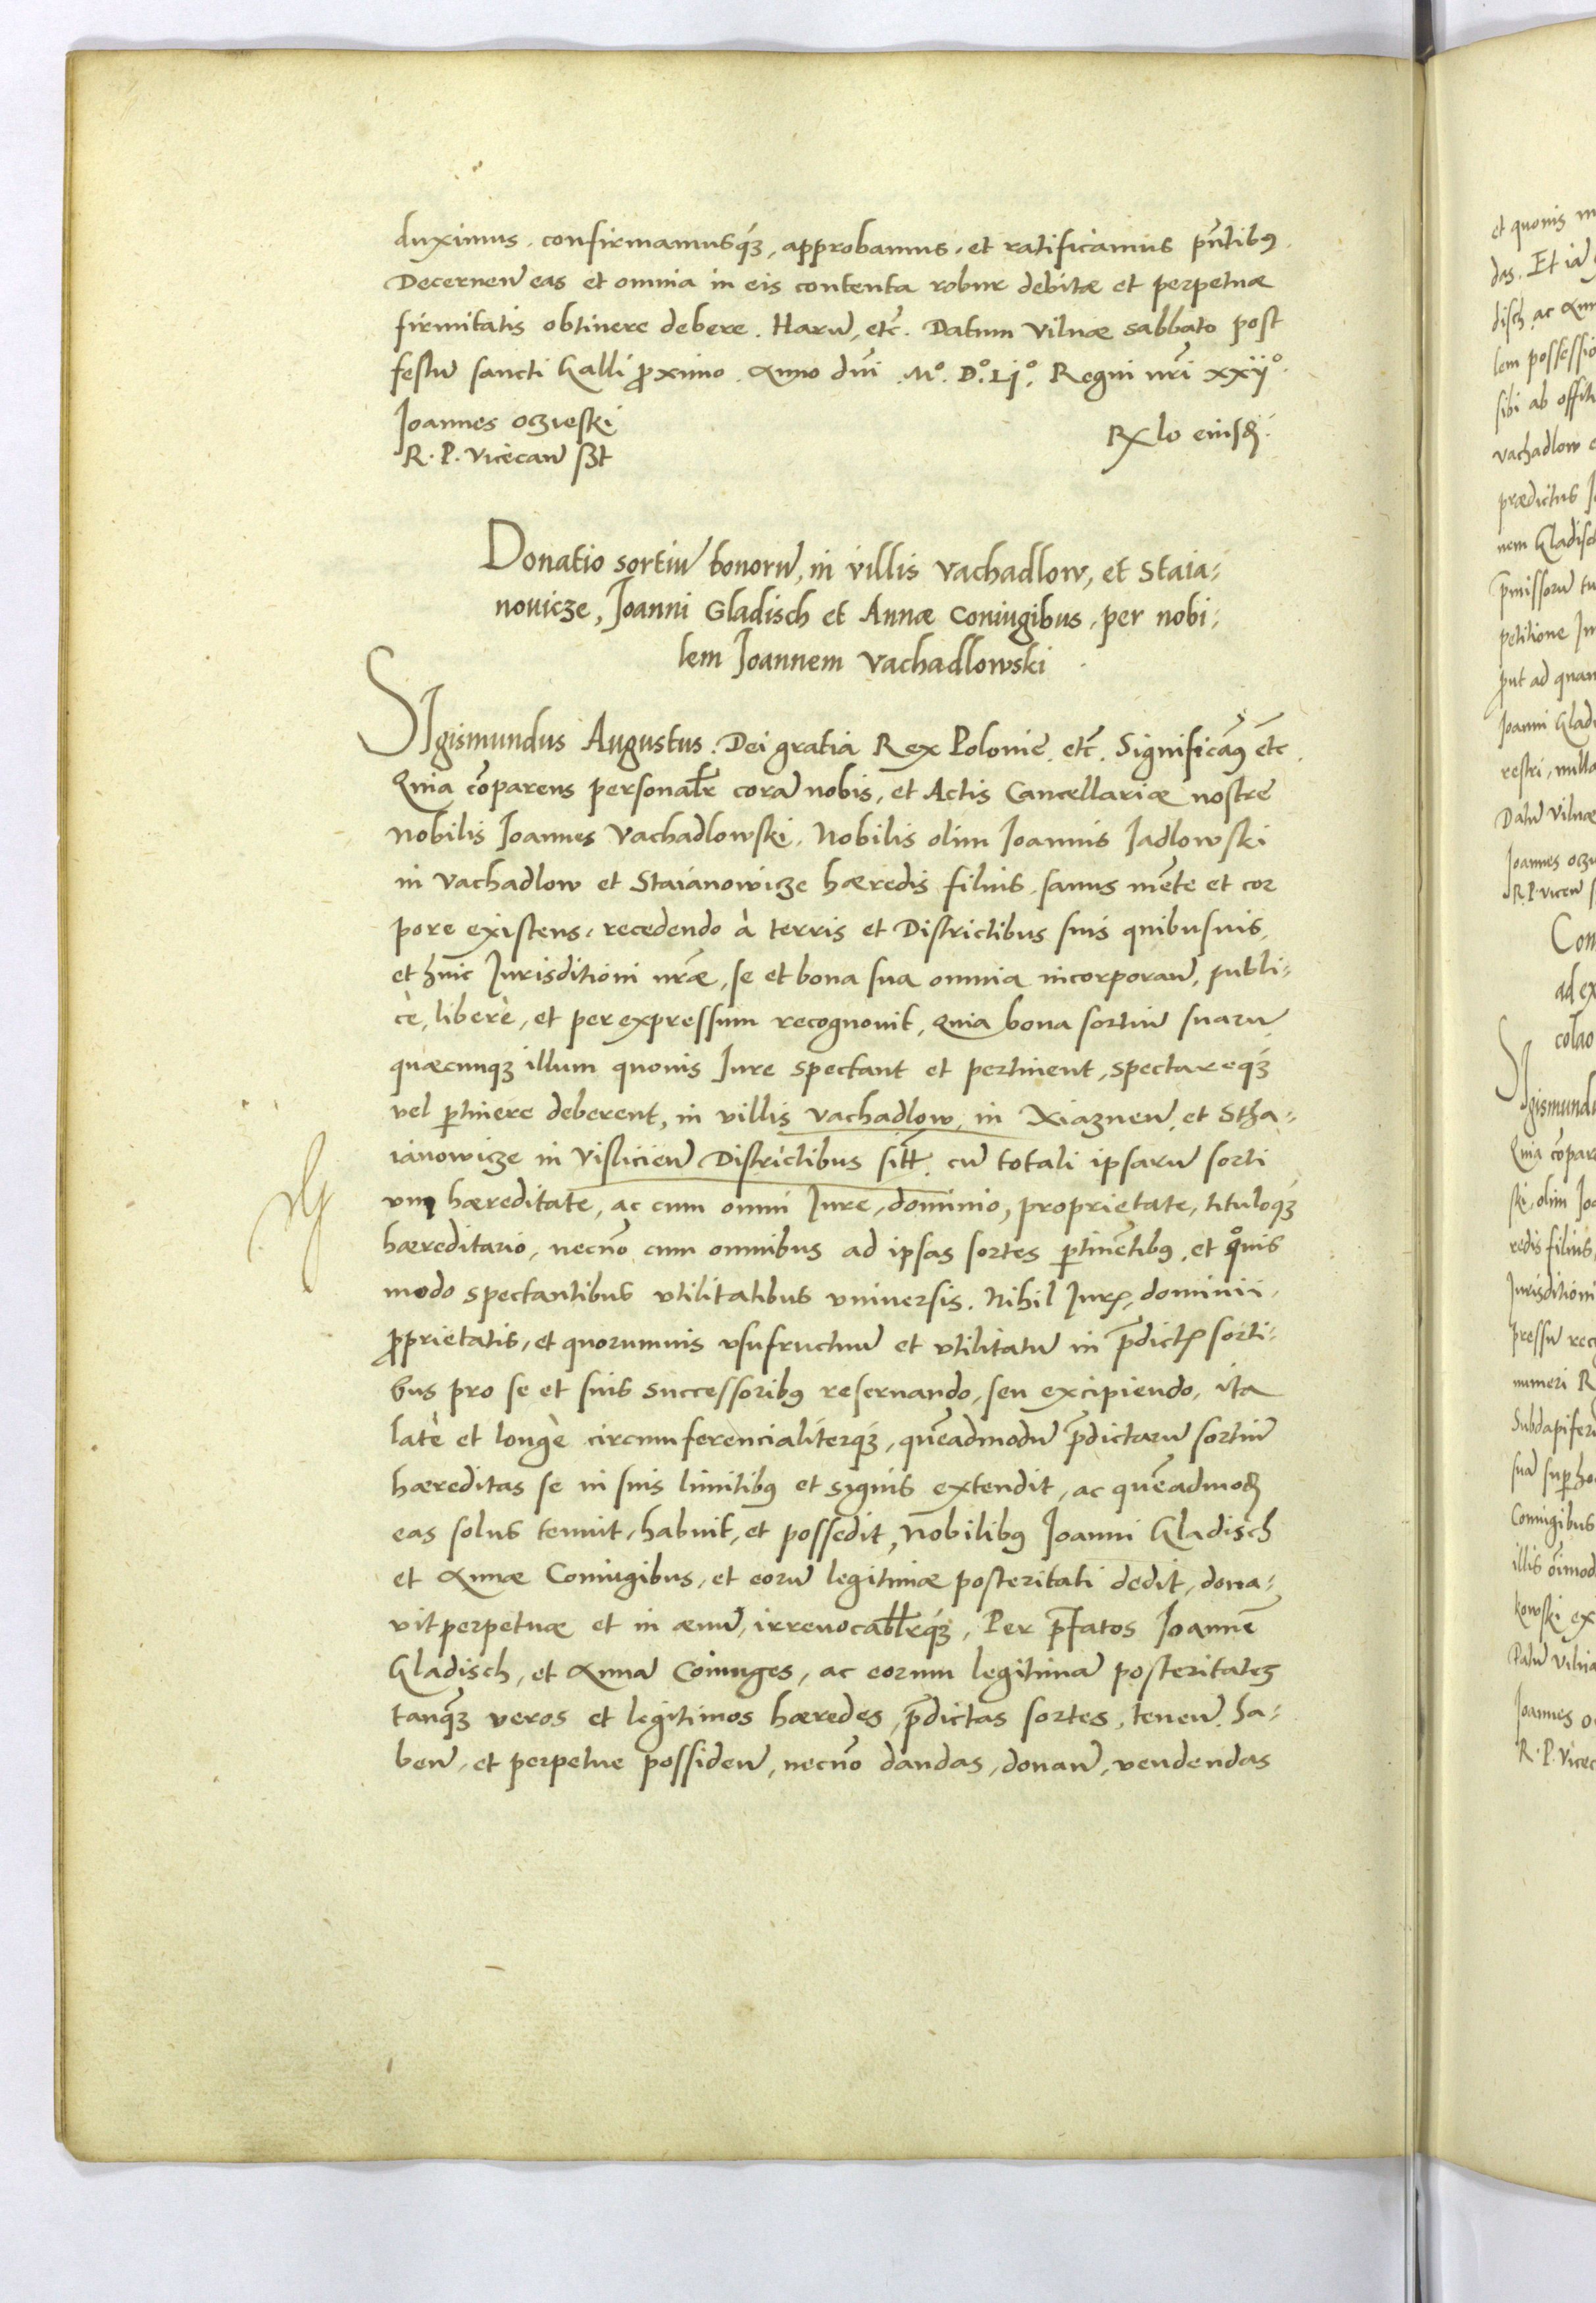 duximus, confirmamusq́ꝫ, approbamus, et ratificamus pn̄tibꝰ.
Decernen̄ eas et omnia in eis contenta robur debitæ et perpetuæ
firmitatis obtinere debere. Harū, etc̄. Datum Vilnæ sabbato post
festū sancti Galli ꝓximo. Anno dn̄i .Mº. Dº. Ljº. Regni nr̄i xxijº.
Joannes oczieski
R. P. Vicecan̄ sβt
Rx̄lo eiusꝺ.
Donatio sortiū bonorū, in villis Vachadlow, et Staia-
nouicze, Joanni Gladisch et Annæ Coniugibus, per nobi-
lem Joannem Vachadlowski
SIgismundus Augustus. Dei gratia Rex Polonie. etc̄. Significāꝰ etc̄.
Quia cōparens personalr̄ corā nobis, et Actis Cancellariæ nostre
nobilis Joannes Vachadlowski. Nobilis olim Joannis Jadlowski
in Vachadlow et Staianowicze hæredis filius, sanus mēte et cor
pore existens, recedendo à terris et Districtibus suis quibusuis,
et huic Jurisditioni nr̄æ, se et bona sua omnia incorporan̄, publi-
cè, liberè, et per expressum recognouit, Quia bona sortiū suarū
quæcunqꝫ illum quouis Jure spectant et pertinent, spectareq́ꝫ
vel ꝑtinere deberent, in villis Vachadlow, in Xiaznen̄, et Stha-
ianowicze in Vislicien̄ Districtibus sitt̄. cū totali ipsarū sorti
um hæreditate, ac cum omni Jure, dominio, proprietate, tituloq́ꝫ
hæreditario, necnō cum omnibus ad ipsas sortes ꝑtinētibꝰ, et qͦuis
modo spectantibus vtilitatibus vniuersis. Nihil Jurꝭ, dominii,
ꝓprietatis, et quorumuis vsufructuū et vtilitatū in p̄dictꝭ sorti-
bus pro se et suis successoribꝰ reseruando, seu excipiendo, ita
latè et longè circumferencialiterq́ꝫ, quēadmodū p̄dictarū sortiū
hæreditas se in suis limitibꝰ et signis extendit, ac quēadmoꝺ
eas solus tenuit, habuit, et possedit, Nobilibꝰ Joanni Gladisch
et Annæ Coniugibus, et eorū legitimæ posteritati dedit, dona-
vit perpetuæ et in æuū, irreuocabl̄rq́ꝫ, Per p̄fatos Joannē
Gladisch, et Annā Coniuges, ac eorum legitimā posteritatēꝫ
tanq̄ꝫ veros et legitimos hæredes, p̄dictas sortes, tenen̄. ha-
ben̄, et perpetue possiden̄, necnō dandas, donan̄, vendendas